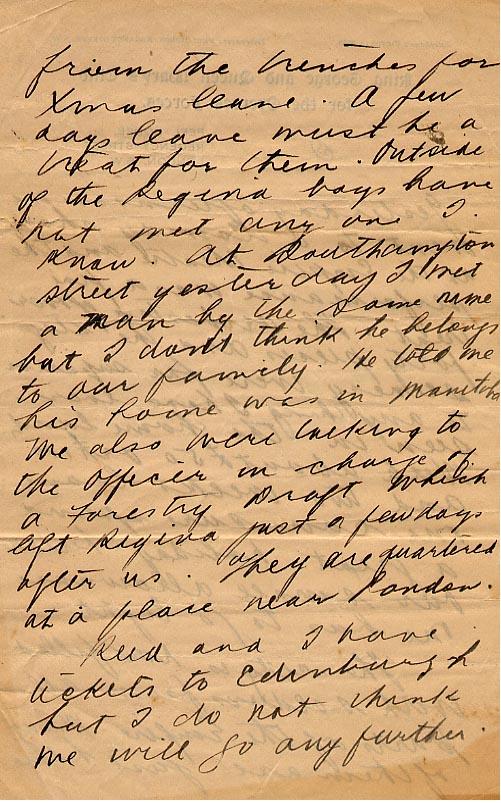 from the trenches for
Xmas leave. A few
days leave must be a
treat for them. Outside
of the Regina boys have
not met any one I
know. At Southampton
street yesterday I met
a man by the same name
but I dont think he belongs
to our family. He told me
his home was in Manitoba
We also were talking to
the officer in charge of
a Forestry Draft which
left Regina just a few days
after us. They are quartered
at a place near London.
Reid and I have
tickets to Edinburgh
but I do not think
we will go any further.